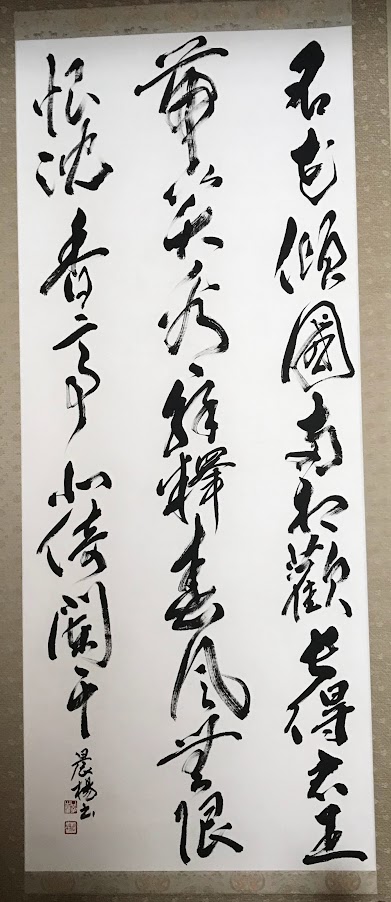 名花傾國兩相歡長得君王
帶笑看解釋春風無限
恨沈香亭北倚闌干
晨楊书